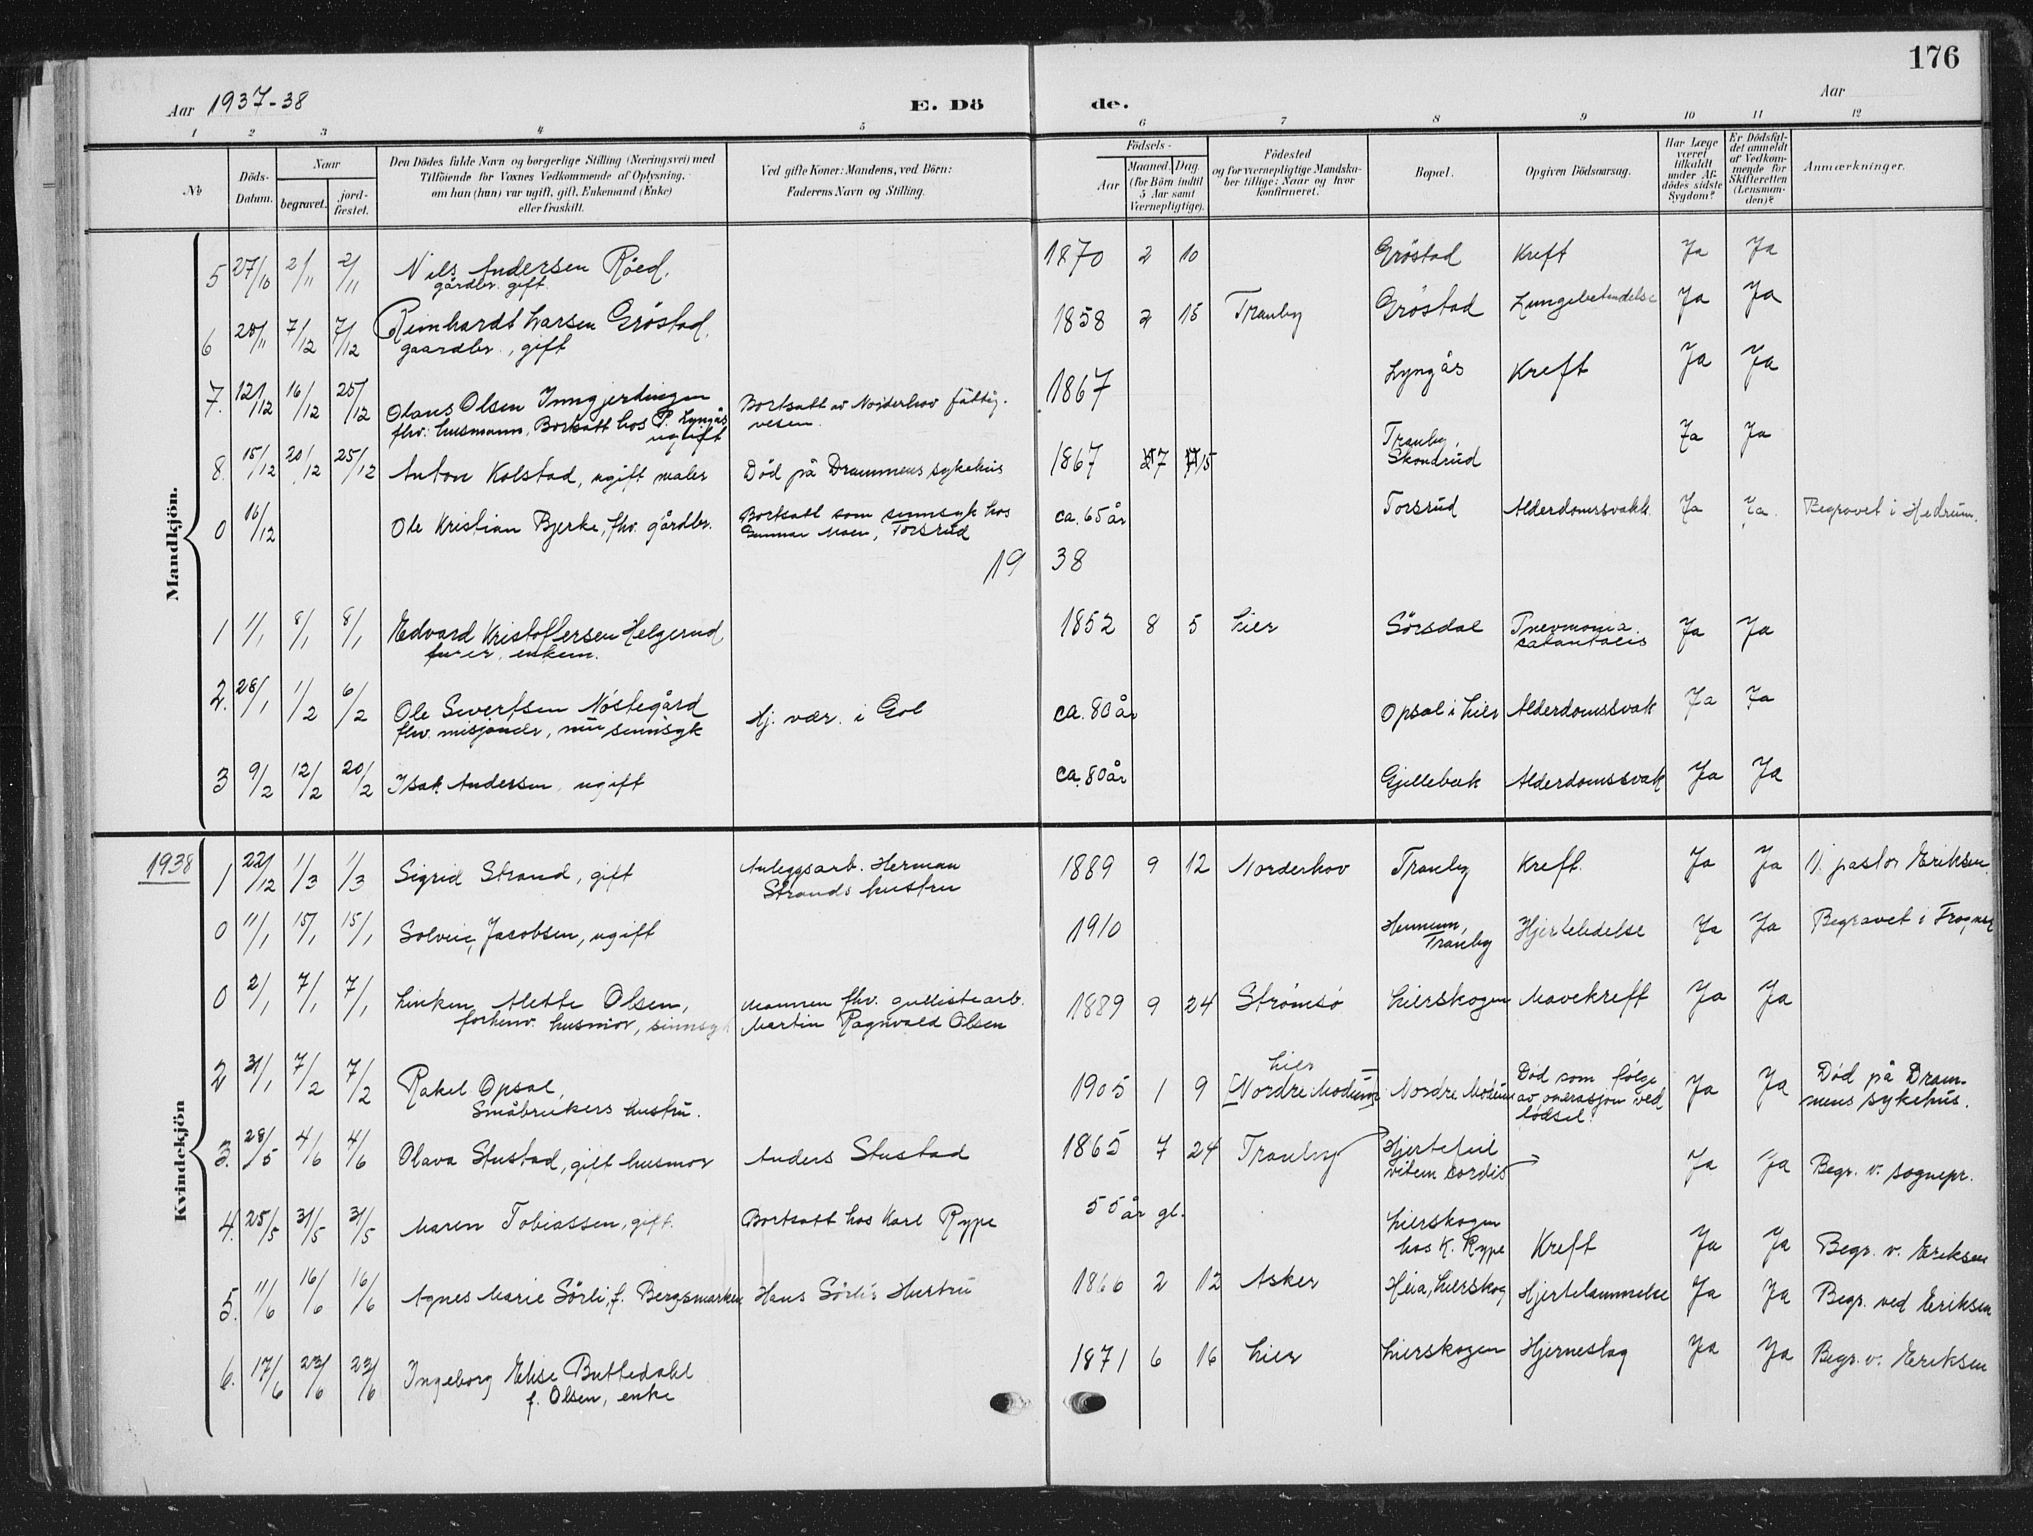 176
Aar 1937-38
E. Dö
de.
Aar
1 2 3 4 5 6 7 8 9 10 11 12
No
Döds-Datum.
Naar
begravet.
jord-fæstet.
Den Dödes fulde Navn og borgerlige Stilling (Næringsvei) med
Tilföiende for Voxnes Vedkommende af Oplysning,
om han (hun) var ugift, gift, Enkemand (Enke)
eller fraskilt.
Ved gifte Koner: Mandens, ved Börn:
Faderens Navn og Stilling.
Födsels-
Aar
Maaned. Dag.
(for Börn indtil
5 Aar samt
Værnepligtige).
Födested
og for værnepligtige Mandska-
ber tillige: Naar og hvor
konfirmeret.
Bopæl.
Opgiven Dödsaarsag.
Har Læge
været
tilkaldt
under Af-
dödes sidste
Sygdom?
Er Dödsfal-
det anmeldt
af Vedkom-
mende for
Skifteretten
(Lensman-
den)?
Anmærkninger.
Mandkjön.
5 27/10 2/11 2/11 Nils Andersen Röed, 1870 2 10 Gröstad Kreft Ja Ja
gårdbr. gift.
6 7/12 7/12 Reinhardt Larsen Gröstad, 1858 2 15 Tranby Gröstad Lungebetendelse Ja Ja
gaardbr., gift
7. 12/12 16/12 25/12 Olaus Olsen Inngjerdingen Bortsatt av Norderhov fattig- 1867 Lyngås Kreft Ja Ja
fhv. husmann, Bortsatt hos P. Lyngås vesen.
ugift
8. 15/12 20/12 25/12 Anton Kolstad, ugift maler Död på Drammens sykehus 1867 7 15 Tranby, Ja Ja
Skondrud
0 16/12 Ole Kristian Bjerke, fhv. gårdbr. Bortsatt som sinnsyk hos ca. 65 år Torsrud Alderdomssvakk. Ja Ja Begravet i Hedrum.
Gunnar Moen, Torsrud
19 38
1 1/1 8/1 8/1 Edvard Kristoffersen Helgerud 1852 8 5 Lier Sörsdal Pnevmonia Ja Ja
enkem.
2. 28/1 1/2 6/2 Ole Sivertsen Nöstegård Hj. vær. i Gol ca. 80 år Opsal i Lier Alderdomssvak Ja Ja
fhv. misjonær, nu sinnsyk
3 9/2 12/2 20/2 Isak Andersen, ugift ca. 80 år Gjellebæk Alderdomssvak Ja Ja
Kvindekjön
1938
1 22/12 1/3 1/3 Sigrid Strand, gift Anleggsarb. Herman 1889 9 12 Norderhov Tranby Kreft. Ja Ja V. pastor Eriksen.
Strands hustru
0 11/1 15/1 15/1 Solveig Jacobsen, ugift 1910 Hennum, Hjertelidelse Ja Ja Begravet i Frogner
Tranby
0 2/1 7/1 7/1 Linken Alette Olsen, Mannen fhv. gullistearb. 1889 9 24 Strömsö Lierskogen Mavekreft Ja Ja
forhenv. husmor, sinnsyk Martin Ragnvald Olsen
2 31/1 7/2 7/2 Rakel Opsal, 1905 1 9 Lier [Nordre Modum] Nordre Modum Död som fölge Ja Ja Död på Dram-
Småbrukers hustru. av operasjon ved mens sykehus.
födsel.
3. 28/5 4/6 4/6 Olava Stustad, gift husmor Anders Stustad 1865 7 24 Tranby Hjertefeil Ja Ja Begr. v. sognepr.
vitium cordis
4. 25/5 31/5 31/5 Maren Tobiassen, gift. Bortsatt hos Karl Rype 55 år gl. Lierskogen Kreft Ja Ja Begr. v. Eriksen
hos K. Rype
5. 11/6 16/6 16/6 Agnes Marie Sörli, f. Bergsmarken Hans Sörlis Hustru 1866 2 12 Asker Heia, Lierskog Hjertelammelse Ja Ja Begr. ved Eriksen
6. 17/6 23/6 23/6 Ingeborg Elise Buttedahl 1871 6 16 Lier Lierskogen Hjerneslag Ja Ja Begr. v. Eriksen
f. Olsen, enke